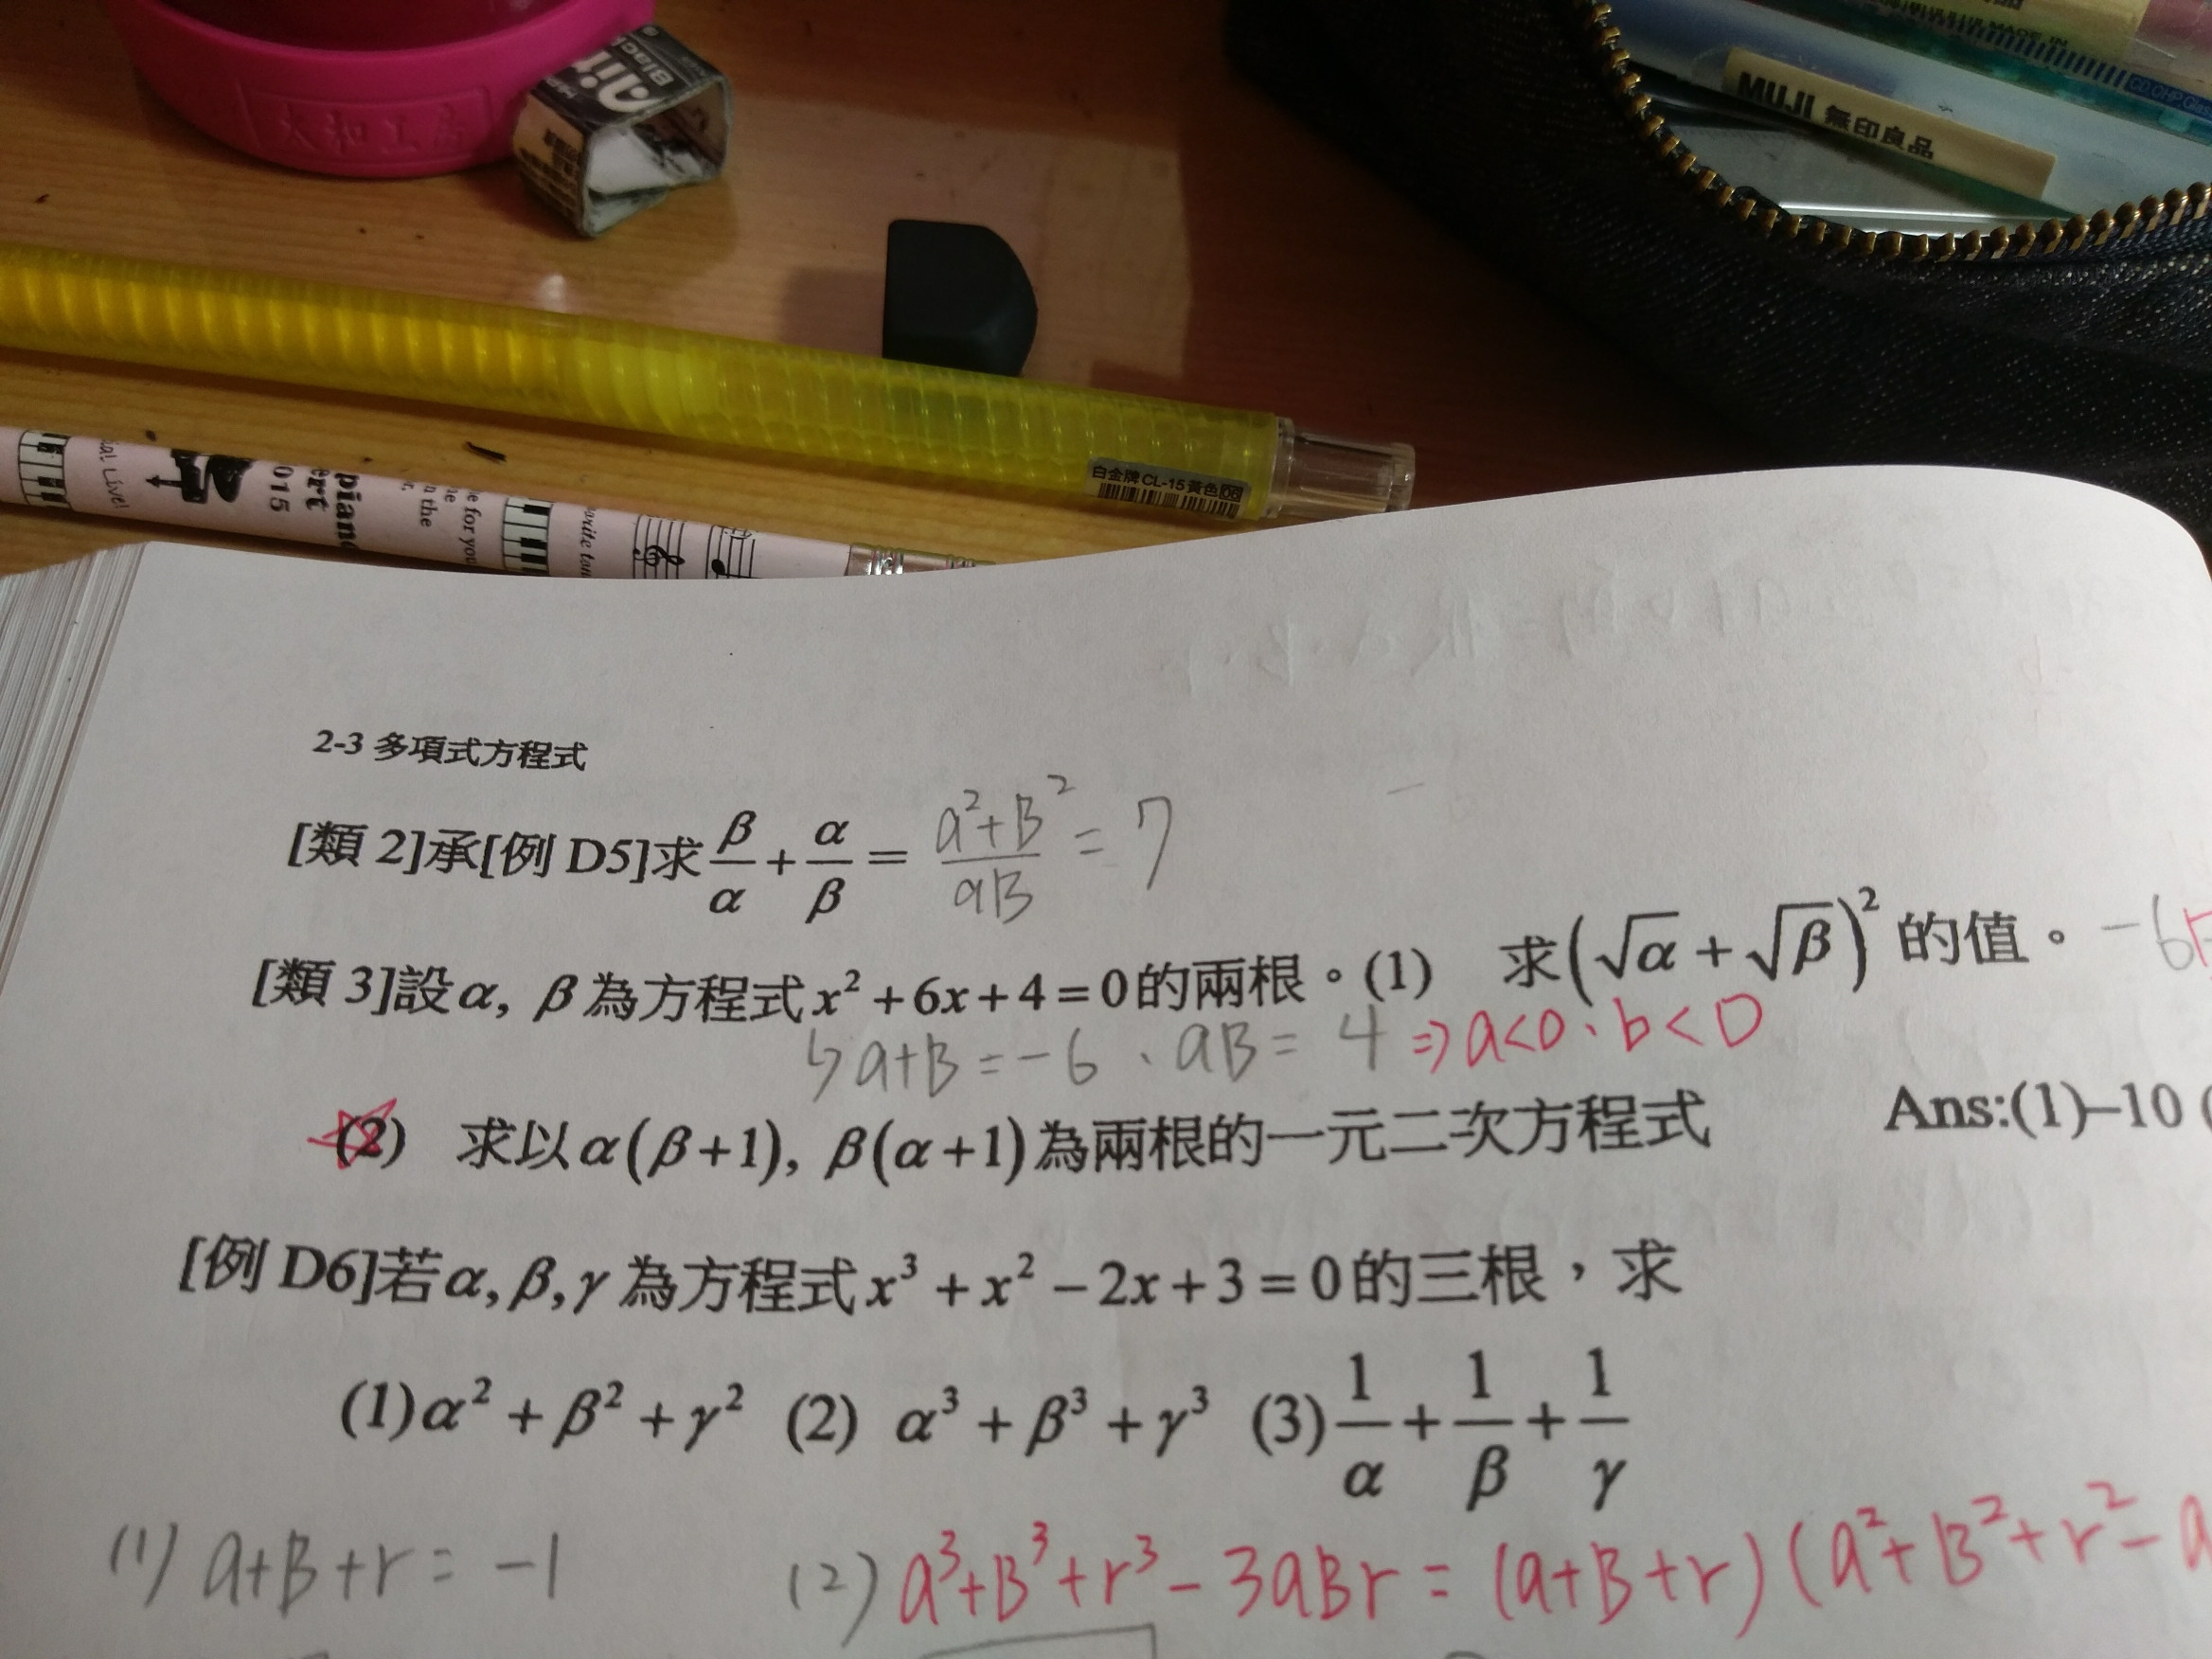 太和工房
Black
MUJI 無印良品
MADE IN
白金牌 CL-15 黃色
piano
015
e for you
n the
2-3 多項式方程式
[類 2]承[例 D5]求 β/α + α/β = a²+B²/aB = 7
[類 3]設 α, β 為方程式 x² + 6x + 4 = 0 的兩根。(1) 求(√α + √β)² 的值。 -6
↳ a+B = -6 、 aB = 4 ⇒ a<0、b<0
(2) 求以 α(β+1), β(α+1) 為兩根的一元二次方程式 Ans:(1)–10 (
[例 D6]若 α, β, γ 為方程式 x³ + x² − 2x + 3 = 0 的三根，求
(1) α² + β² + γ² (2) α³ + β³ + γ³ (3) 1/α + 1/β + 1/γ
(1) a+B+r = -1 (2) a³+B³+r³ - 3aBr = (a+B+r)(a²+B²+r² - a